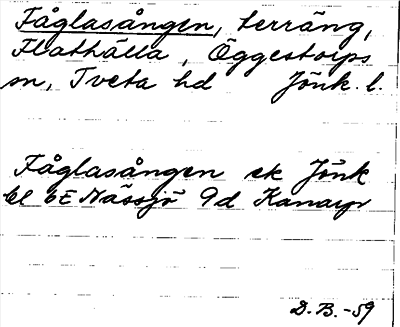 Fåglasången, terräng,
Flathälla, Öggestorps
sn, Tveta hd Jönk. l.
Fåglasången ek Jönk
bl 6E Nässjö 9d Kanarp
D.B.-59